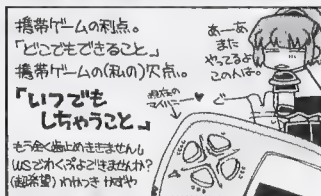 携帯ゲームの利点。
「どこでもできること。」
携帯ゲームの(私の)欠点。
「いつでも
しちゃうこと」
もう全く歯止めききませんし
WSでわくぷよできませんか?
(超希望) わかつき かずや
あーあ
また
やってるよ
このhは。
現在の
マイバニー
ぐー